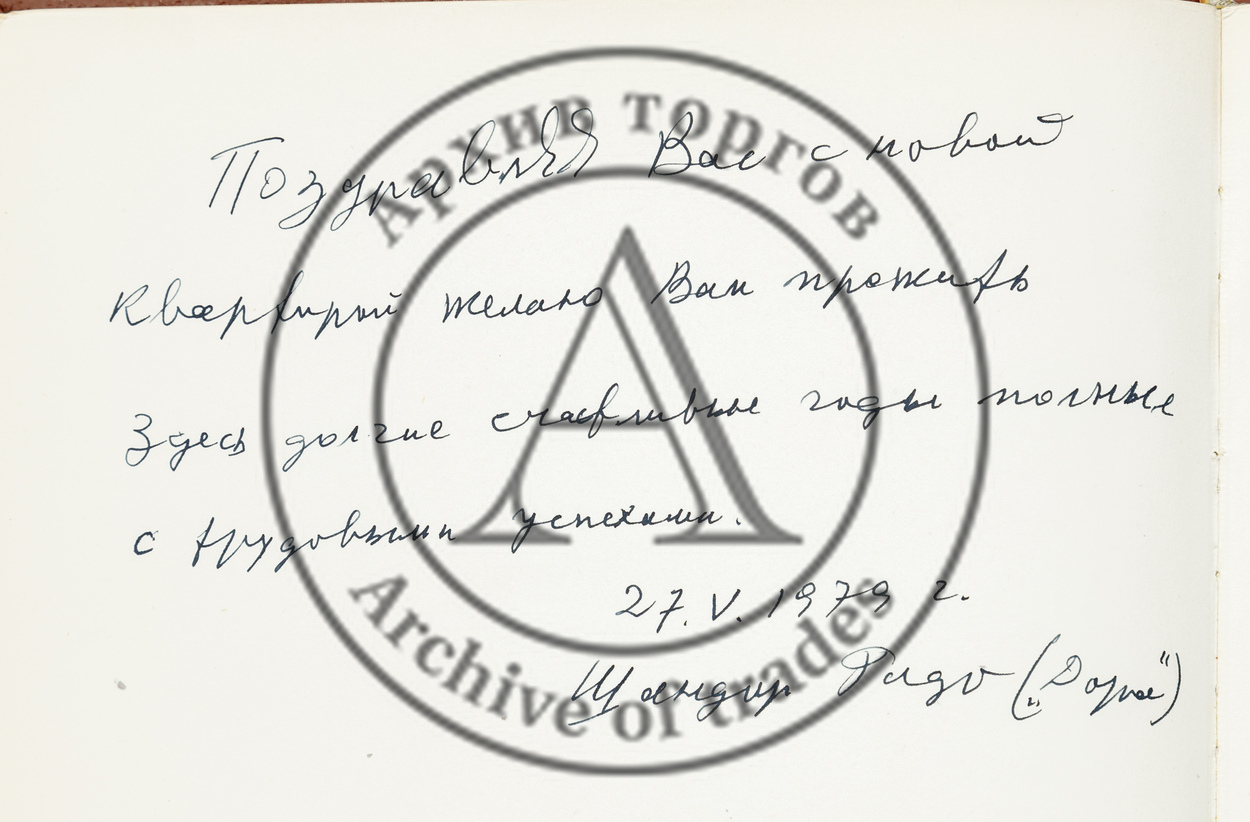 Архив торгов
Поздравляя Вас с новой
Квартирой желаю Вам прожить
Здесь долгие счастливые годы полные
с трудовыми успехами.
27. V. 1979 г.
Шандор Радо („Дора")
А
Archive of trades